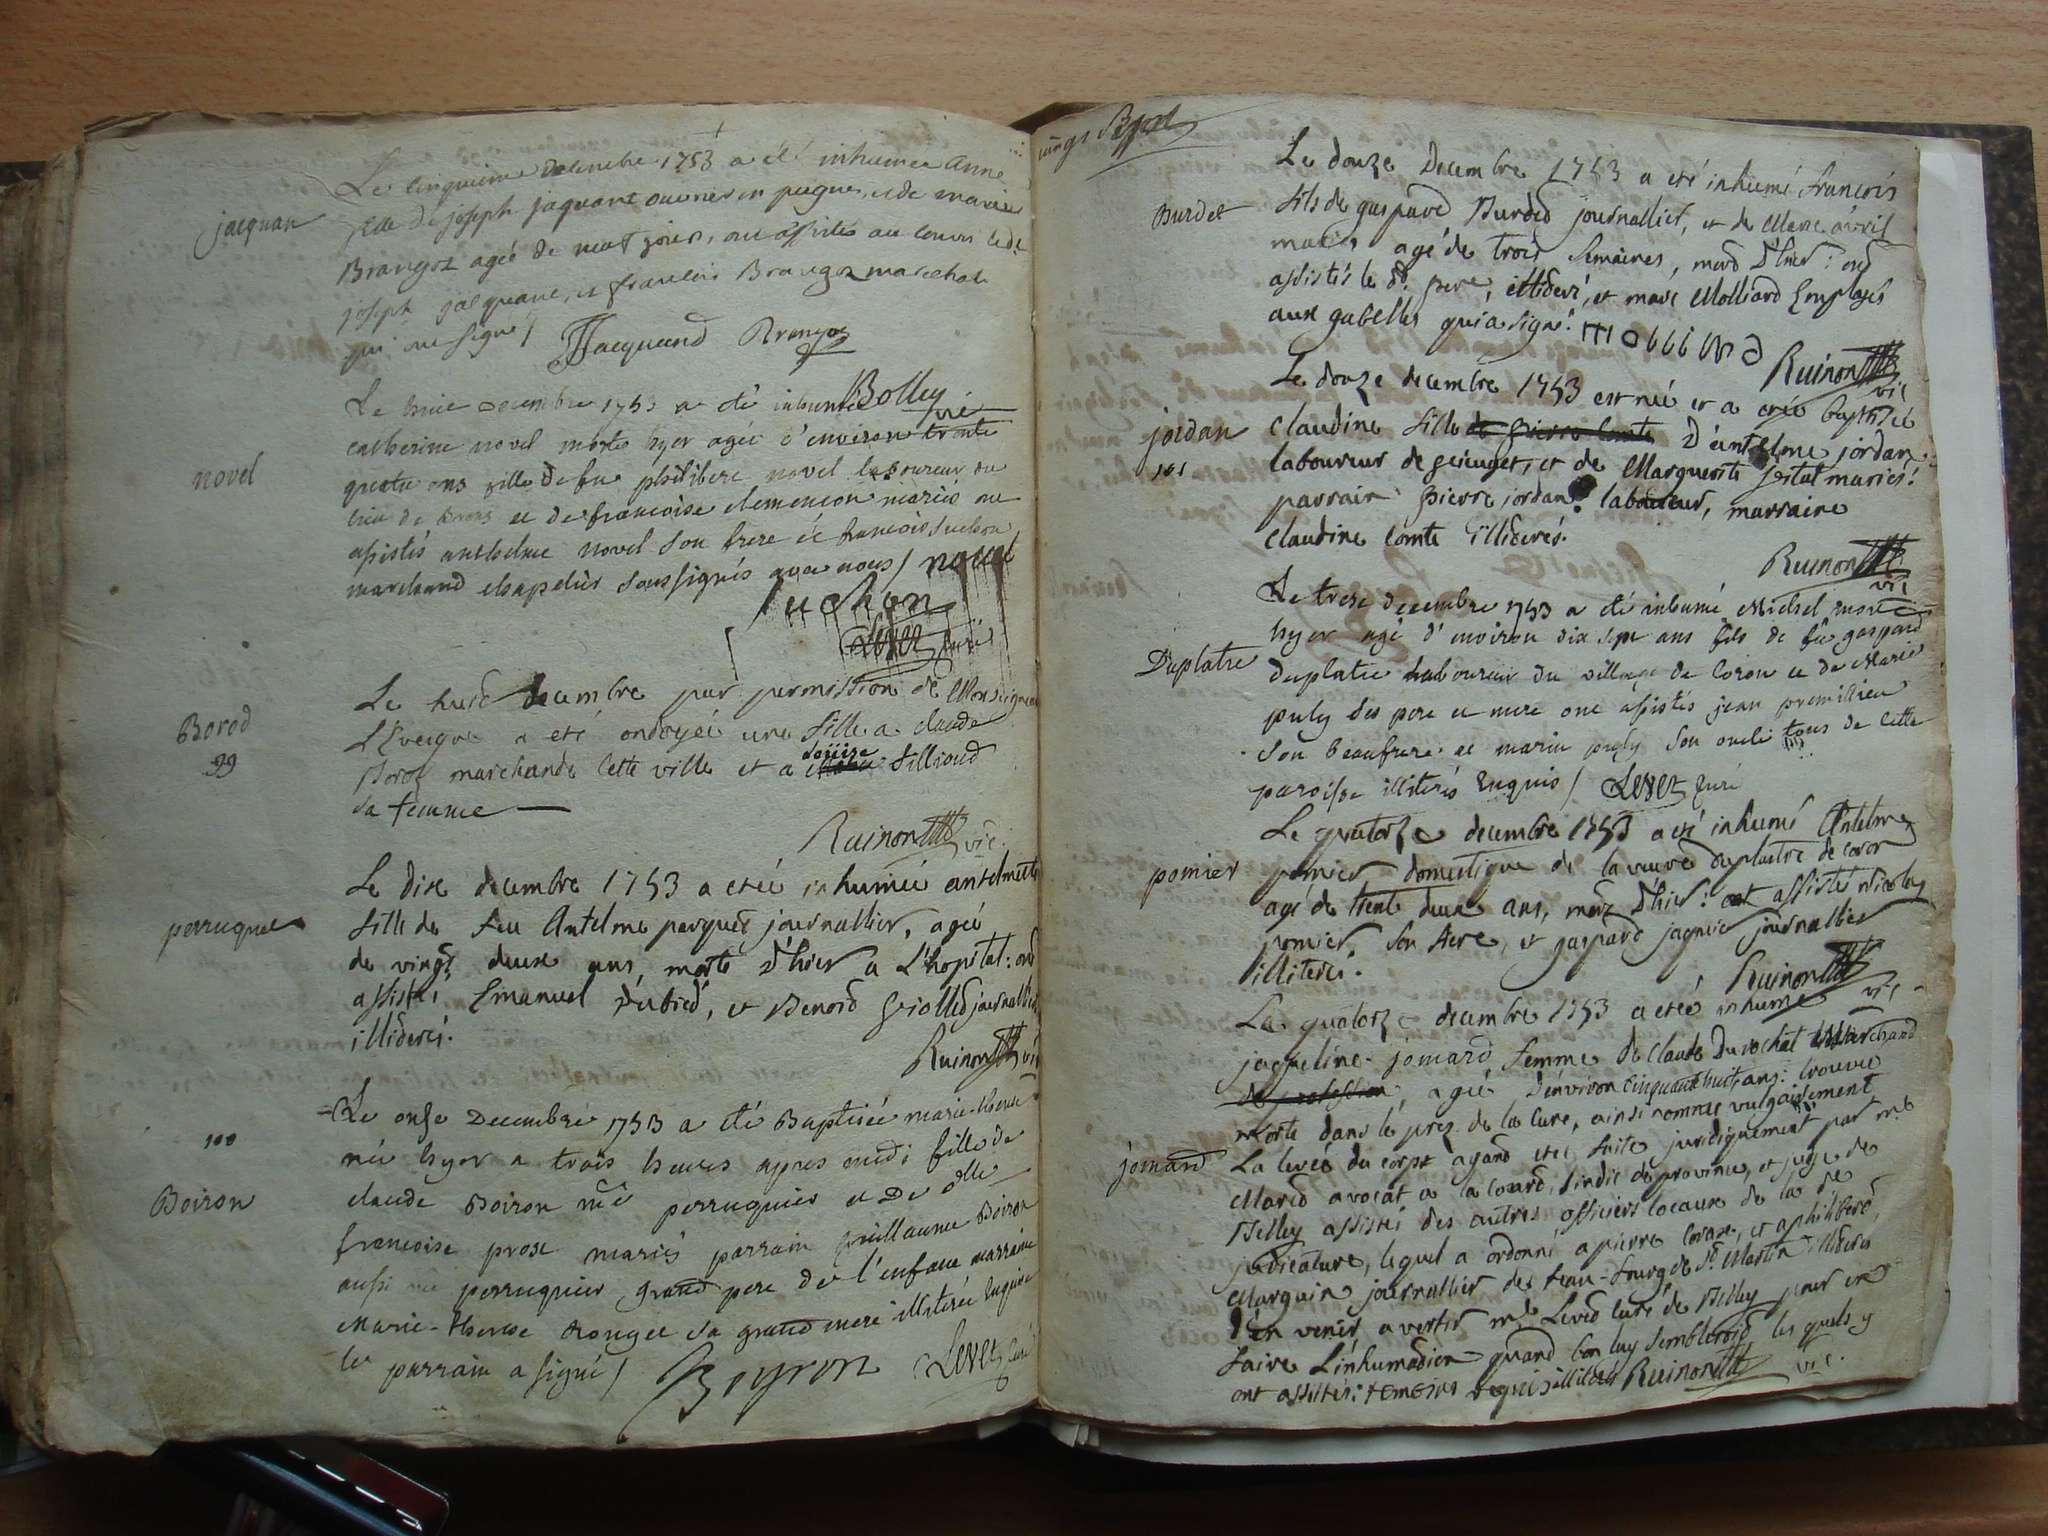 Le cinquieme decembre 1753 a été inhumée Anne
jacquan
fille de joseph jaquant ouvrier en peignes, et de marie
Brangoz agée de neuf jours, ont assistés au convoi ledt
joseph jacquant, et francois Brangoz marechal
qui ont signé / Jacquand Brangoz
Bolley vic
Le huit decembre 1753 a été inhumée
catherine novel morte hyer agée d'environ trente
novel
quatre ans fille de feu philibert novel laboureur du
lieu de et de francoise clemencon mariés ont
assistés anthelme novel son frere et francois suchon
marchand chapelier soussignés avec nous / novel
suchon
Levet curé
Le huit decembre par permission de Monseigneur
L'Eveque a eté ondoyée une fille a claude
Borod
99
Borot marchand de cette ville et a loüise filliond
sa femme
Ruinon vic.
Le dix decembre 1753 a eteé inhumée antelmette
perruquet
fille de feu Antelme perquet journallier, agée
de vingt deux ans, morte d'hier a L'hopital: ont
assisté Emanuel Dubied, et Benoid Giolled journallier
illiderés.
Ruinon vic
Le onse Decembre 1753 a été Baptisée marie-therese
100
née hyer a trois heures apres midi fille de
Boiron
claude Boiron me perruquier et de dlle
francoise prost mariés parrain guillaume Boiron
aussi me perruquier grand pere de l'enfant marraine
marie-therese rouget sa grand mere illiterée Enquise
le parrain a signé / Boyron Levet curé
vingt
Le douze Decembre 1753 a eté inhumé francois
Burdet
fils de gaspard Burded journallier, et de Marie avril
mariés agé de trois semaines, mord d'hier: ond
assistés le dt. pere, illideré, et marc Molliard Employés
aux gabelles qui a signé.
Ruinon vic
Le douze decembre 1753 est née et a eteé baptisée
jordan
101
claudine fille de pierre comte d'antelme jordan
laboureur de geieuget, et de Marguerite festal mariés:
parrain pierre jordan laboureur, marraine
claudine comte illiderés.
Ruinon vic
Le treze decembre 1753 a été inhumé Michel mort
hyer agé d'environ dix sept ans fils de feu gaspard
Duplatre
duplatre laboureur du village de Coron et de Marie
puly ses pere et mere ont assistés jean premilieu
son beaufrere et marin puly son oncle tous de cette
paroisse illiterés Enquis / Levet curé
Le quatorze decembre 1753 a eté inhumé Antelme
pomier
pomier domestique de la veuve duplastre de coron
agé de trente deux ans, mort d'hier: ont assistés nicolas
pomier, son frere, et gaspard jagnie journallier
illiterés.
Ruinon vic
Le quatorze decembre 1753 a eteé inhumé
jaqueline jomard femme de Claude Durochat Marchand
de profession, agée d'environ cinquante huit ans: trouvée
morte dans le prez de la cure, ainsi nommé vulgairement
jomard
La levée du corps ayand eteé faite juridiquement par mr
Mared avocat a la courd, sindic de province, et juge de
Belley assisté des autres officiers locaux de la de
judicature, lequel a ordonné a pierre Corax, et a philiberd
Marguin journallier des feau-bourg de St Martin illiderés
d'en venir avertir mr Leved curé de Belley pour en
faire L'inhumadion quand bon luy sembleroid, les quels y
ont assistés: temoins requis illiderés Ruinon vic.